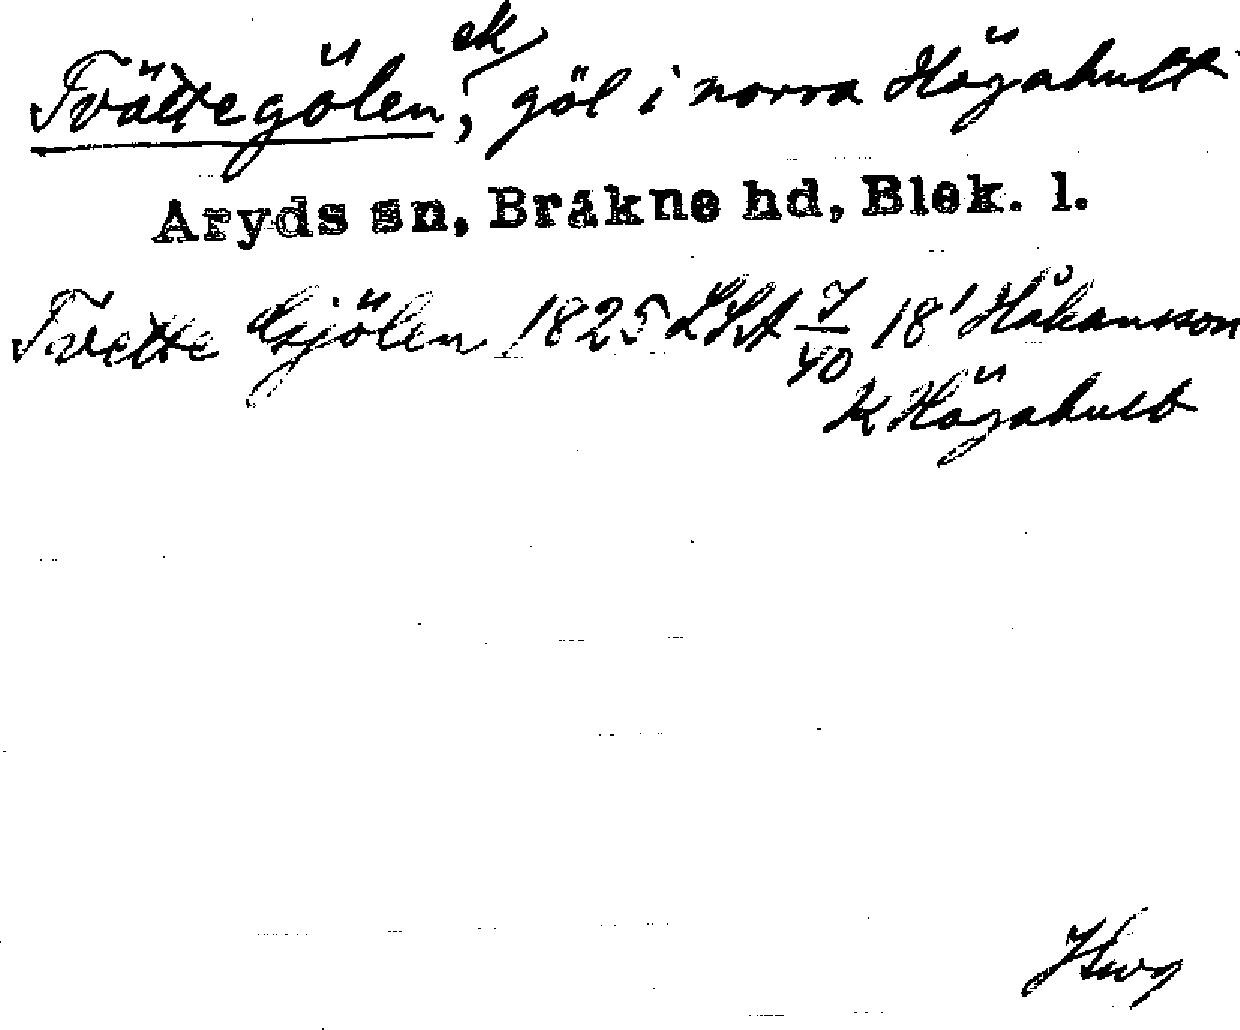 Tvättegölen, ek göl i norra Högahult
Aryds sn, Bräkne hd, Blek. l.
Tvette Gsjölen 1825 LSA 7/40 18' Håkansson
K Högahult